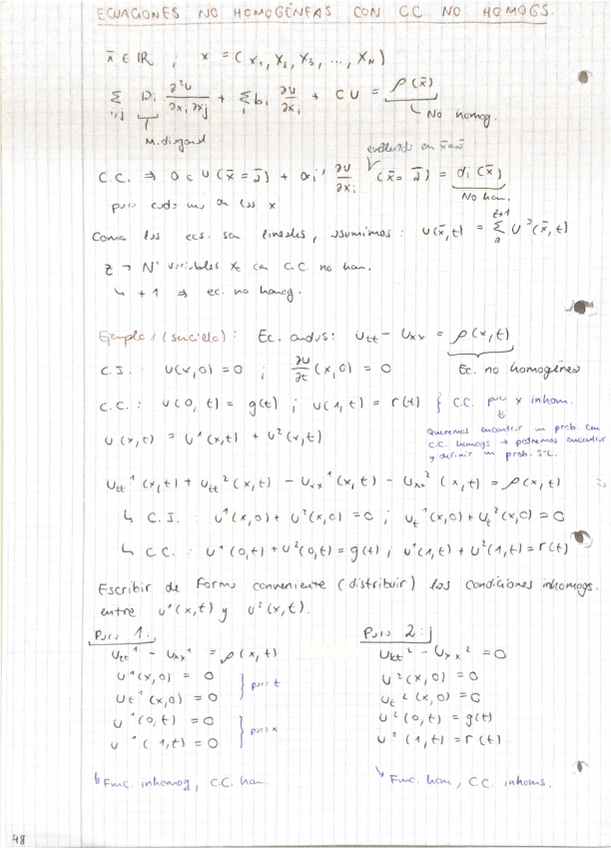 ECUACIONES NO HOMOGÉNEAS CON CC NO HOMOGS.
x̄ ∈ IR ; x = (x₁, x₂, x₃, ..., x_N)
∑_{i,j} D_i ∂²u/∂x_i ∂x_j + ∑_i b_i ∂u/∂x_i + CU = ρ(x̄)
No homog.
M. diagonal
evaluado en
C.C. ⇒ α c U (x̄ = ā) + α_i' ∂u/∂x_i (x̄ = ā) = d_i (x̄)
No hom.
para cada una de las x
Como las ecs. son lineales, asumimos: u(x̄,t) = ∑^{z+1} U^a (x̄,t)
z → Nº variables x_i con C.C. no hom.
↳ +1 ⇒ ec. no homog.
Ejemplo 1 (sencillo): Ec. ondas: u_tt - u_xx = ρ(x,t)
Ec. no homogénea
C.I.: u(x,0) = 0 ; ∂u/∂t (x,0) = 0
C.C.: u(0,t) = g(t) ; u(1,t) = r(t) } C.C. para x inhom.
Queremos encontrar un prob. con
C.C. homogs → podremos encontrar
y definir un prob. S-L.
u(x,t) = u¹(x,t) + u²(x,t)
u_tt¹(x,t) + u_tt²(x,t) - u_xx¹(x,t) - u_xx²(x,t) = ρ(x,t)
↳ C.I.: u¹(x,0) + u²(x,0) = 0 ; u_t¹(x,0) + u_t²(x,0) = 0
↳ C.C.: u¹(0,t) + u²(0,t) = g(t) ; u¹(1,t) + u²(1,t) = r(t)
Escribir de forma conveniente (distribuir) las condiciones inhomogs.
entre u¹(x,t) y u²(x,t).
Para 1:
u_tt¹ - u_xx¹ = ρ(x,t)
u¹(x,0) = 0
u_t¹(x,0) = 0
} para t
u¹(0,t) = 0
u¹(1,t) = 0
} para x
↳ Func. inhomog, C.C. hom.
Para 2:
u_tt² - u_xx² = 0
u²(x,0) = 0
u_t²(x,0) = 0
u²(0,t) = g(t)
u²(1,t) = r(t)
↳ Func. hom, C.C. inhoms.
48